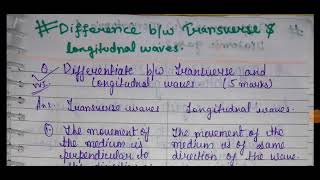 # Difference b/w Transverse &
longitudnal waves.
Q. Differentiate b/w Transverse and
V.I. longitudnal waves (5 marks)
Ans. Transverse waves Longitudnal waves.
The movement of The movement of the
the medium is medium is of same
perpendicular to direction of the wave.